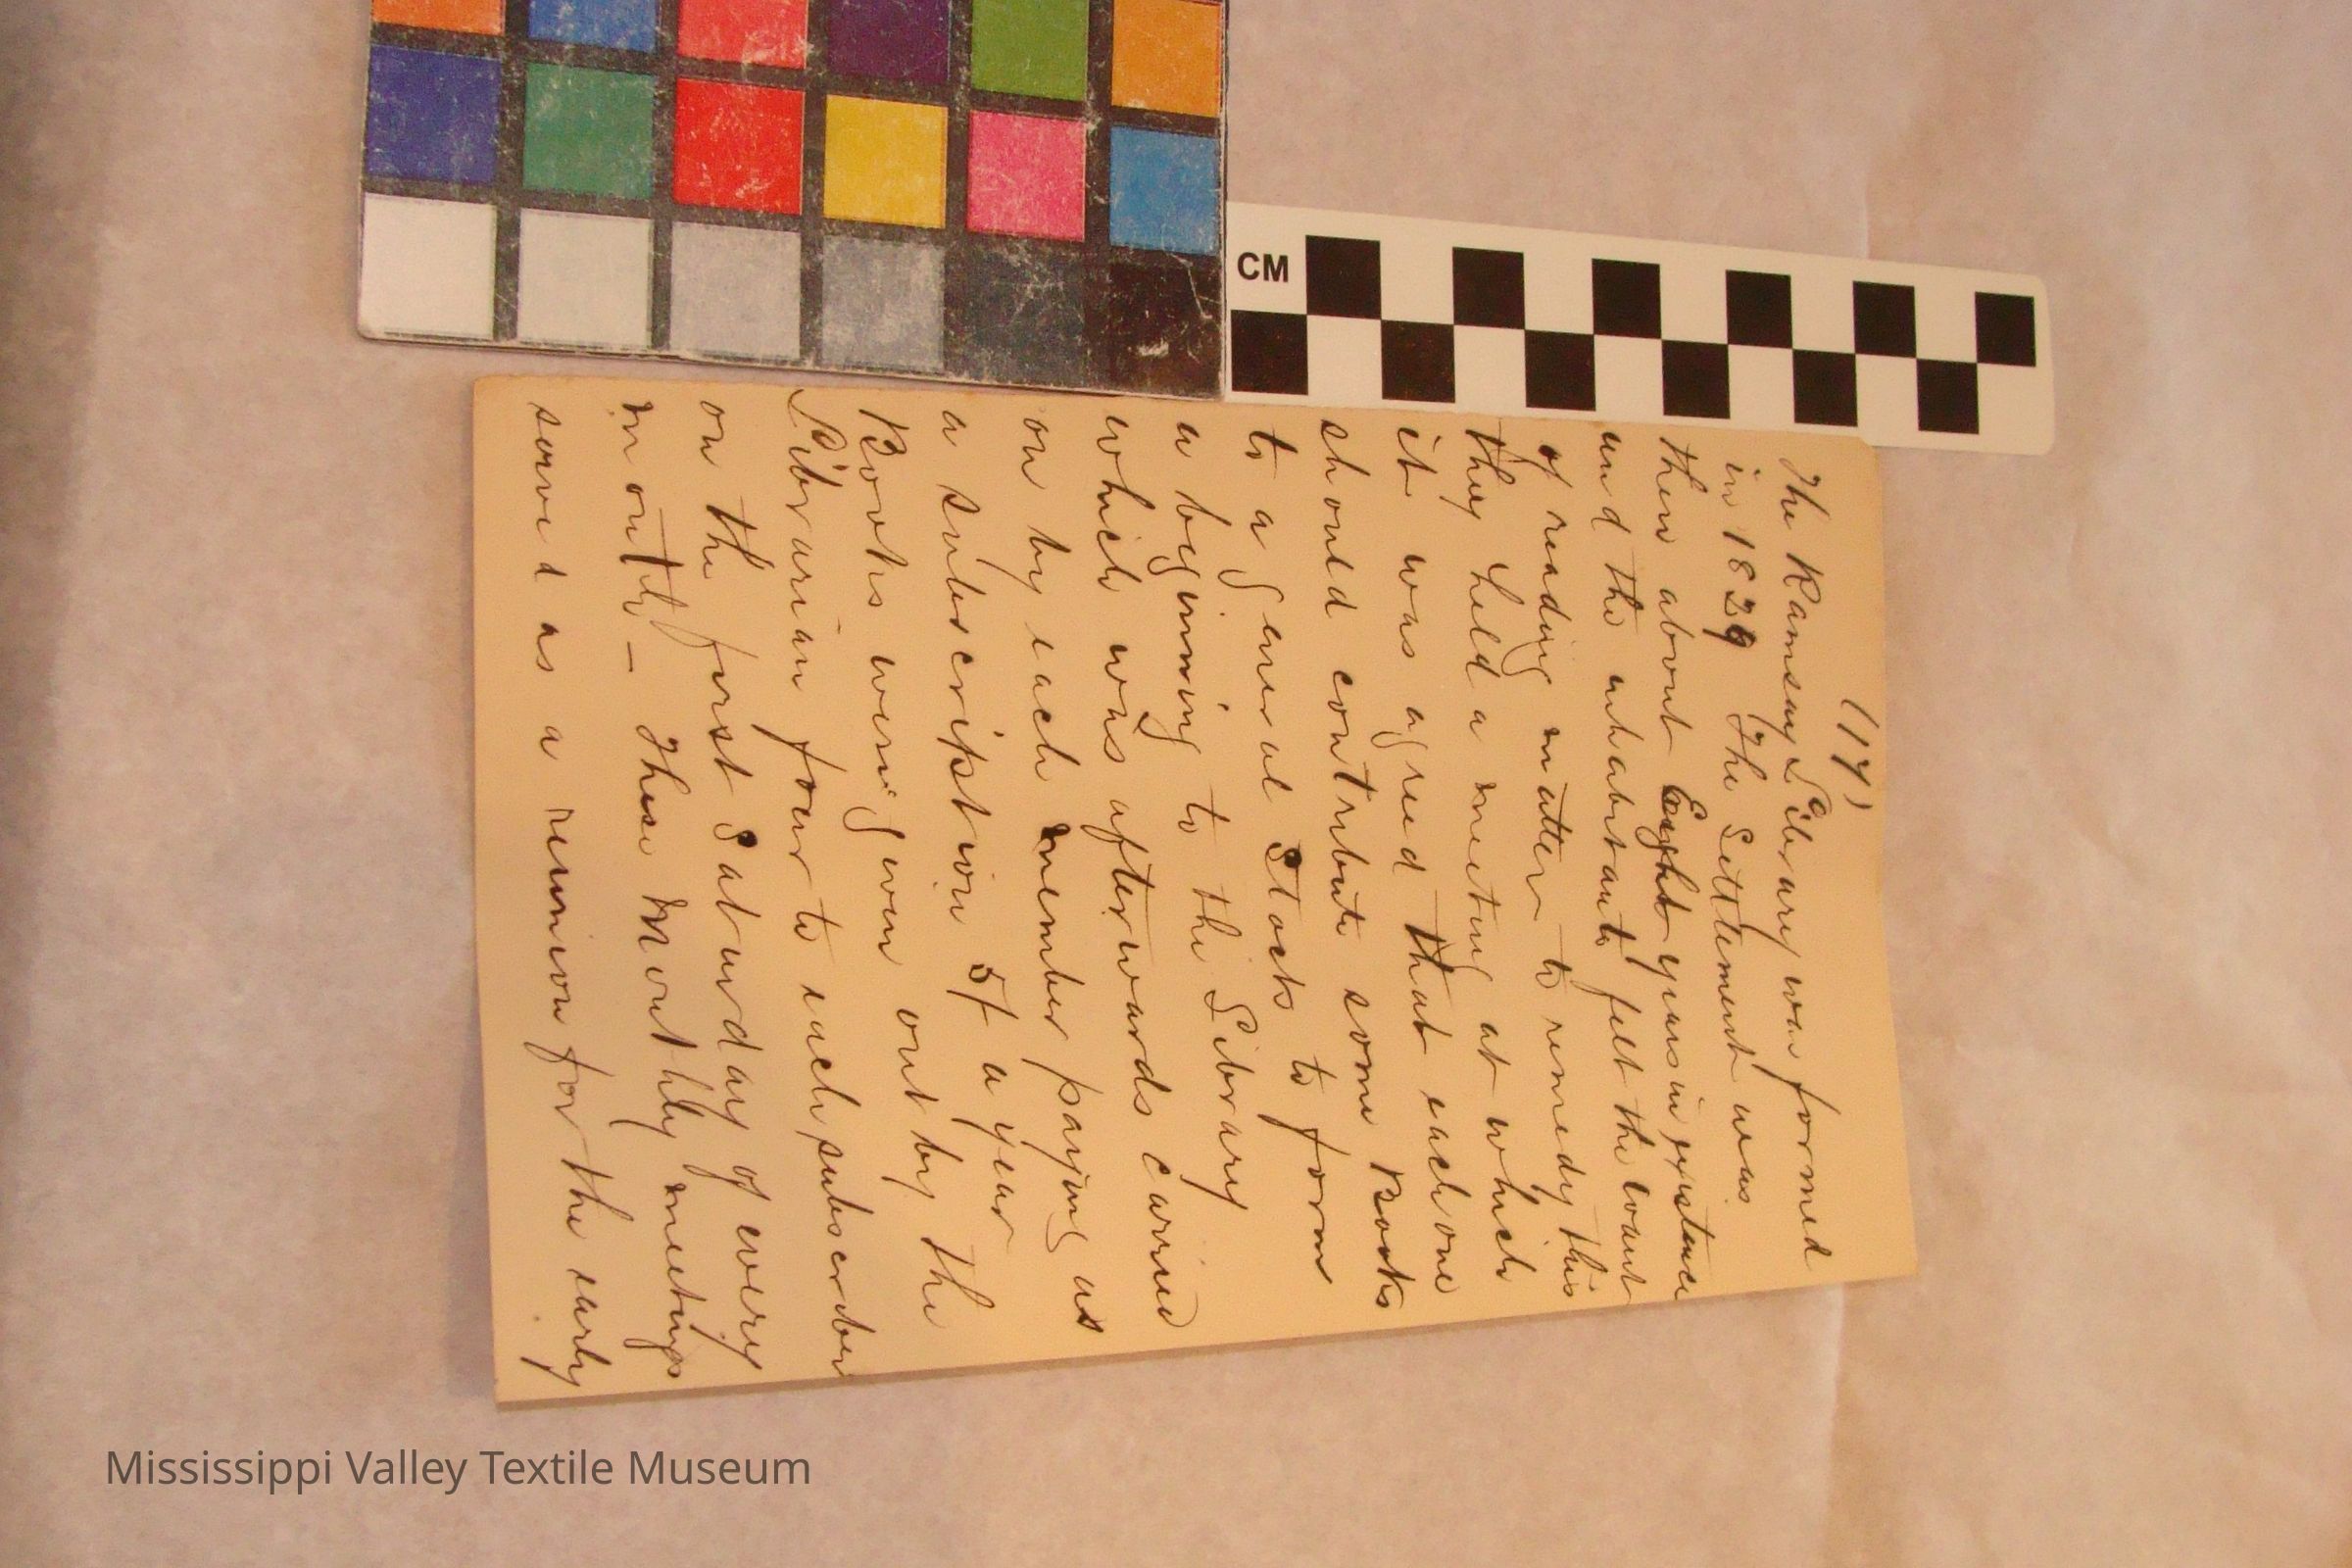 (17)
The Ramsay Library was formed
in 1829 The Settlement was
then about Eight years in existence
and the inhabitants felt the want
of reading matter to remedy this
they held a meeting at which
it was agreed that each one
should contribute some Books
to a general Stock to form
a beginning to the Library
which was afterwards carried
on by each member paying as
a subscription 5/ a year
Books being given out by the
Librarian four to each subscriber
on the first Saturday of every
month – These Monthly meetings
served as a reunion for the early
CM
Mississippi Valley Textile Museum